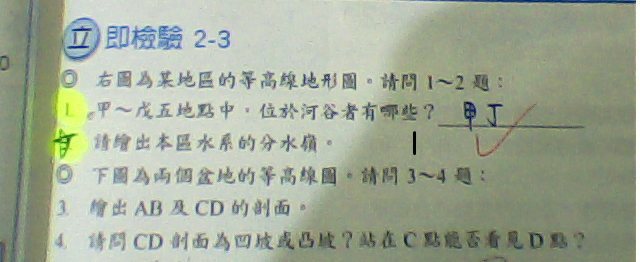 立即檢驗 2-3
◎ 右圖為某地區的等高線地形圖。請問 1～2 題：
1. 甲～戊五地點中，位於河谷者有哪些？ 甲丁
請繪出本區水系的分水嶺。
◎ 下圖為兩個盆地的等高線圖。請問 3～4 題：
3. 繪出 AB 及 CD 的剖面。
4. 請問 CD 剖面為凹坡或凸坡？站在 C 點能否看見 D 點？